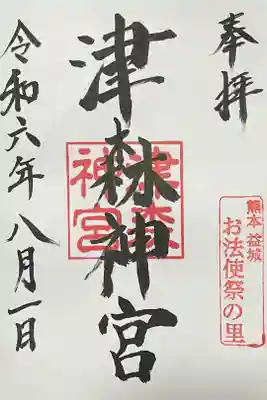 奉拝
熊本 益城
お法使祭の里
津森神宮
津森
神宮
令和六年八月一日